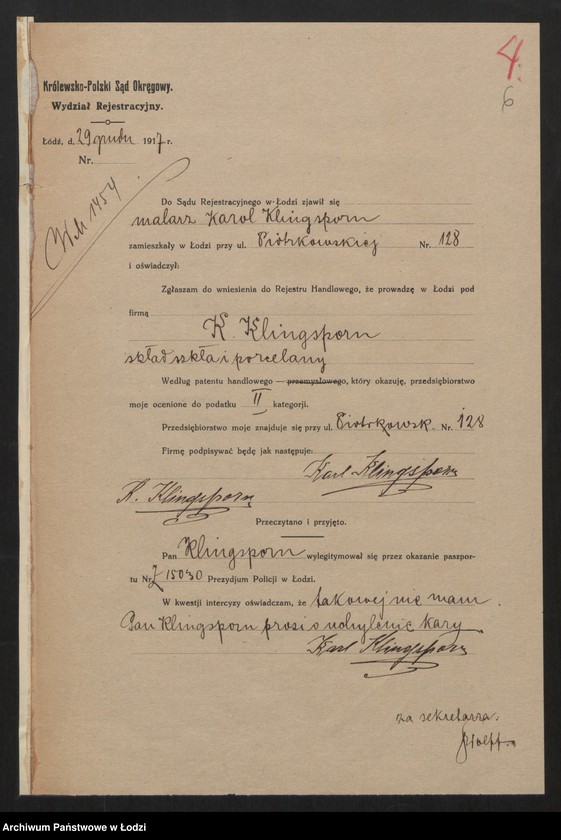 4.
6
Królewsko-Polski Sąd Okręgowy.
Wydział Rejestracyjny.
Łódź, d. 29 grudn 1917 r.
Nr.
Do Sądu Rejestracyjnego w Łodzi zjawił się
malarz Karol Klingsporn
zamieszkały w Łodzi przy ul. Piotrkowskiej Nr. 128
i oświadczył:
Zgłaszam do wniesienia do Rejestru Handlowego, że prowadzę w Łodzi pod
firmą
K. Klingsporn
skład szkła i porcelany
Według patentu handlowego — przemysłowego, który okazuję, przedsiębiorstwo
moje ocenione do podatku II kategorji.
Przedsiębiorstwo moje znajduje się przy ul. Piotrkowsk. Nr. 128
Firmę podpisywać będę jak następuje:
Karl Klingsporn
K. Klingsporn
Przeczytano i przyjęto.
Pan Klingsporn wylegitymował się przez okazanie paszpor-
tu Nr. 15030 Prezydjum Policji w Łodzi.
W kwestji intercyzy oświadczam, że takowej nie mam.
Pan Klingsporn prosi o uchylenie kary
Karl Klingsporn
za sekretarza:
Archiwum Państwowe w Łodzi